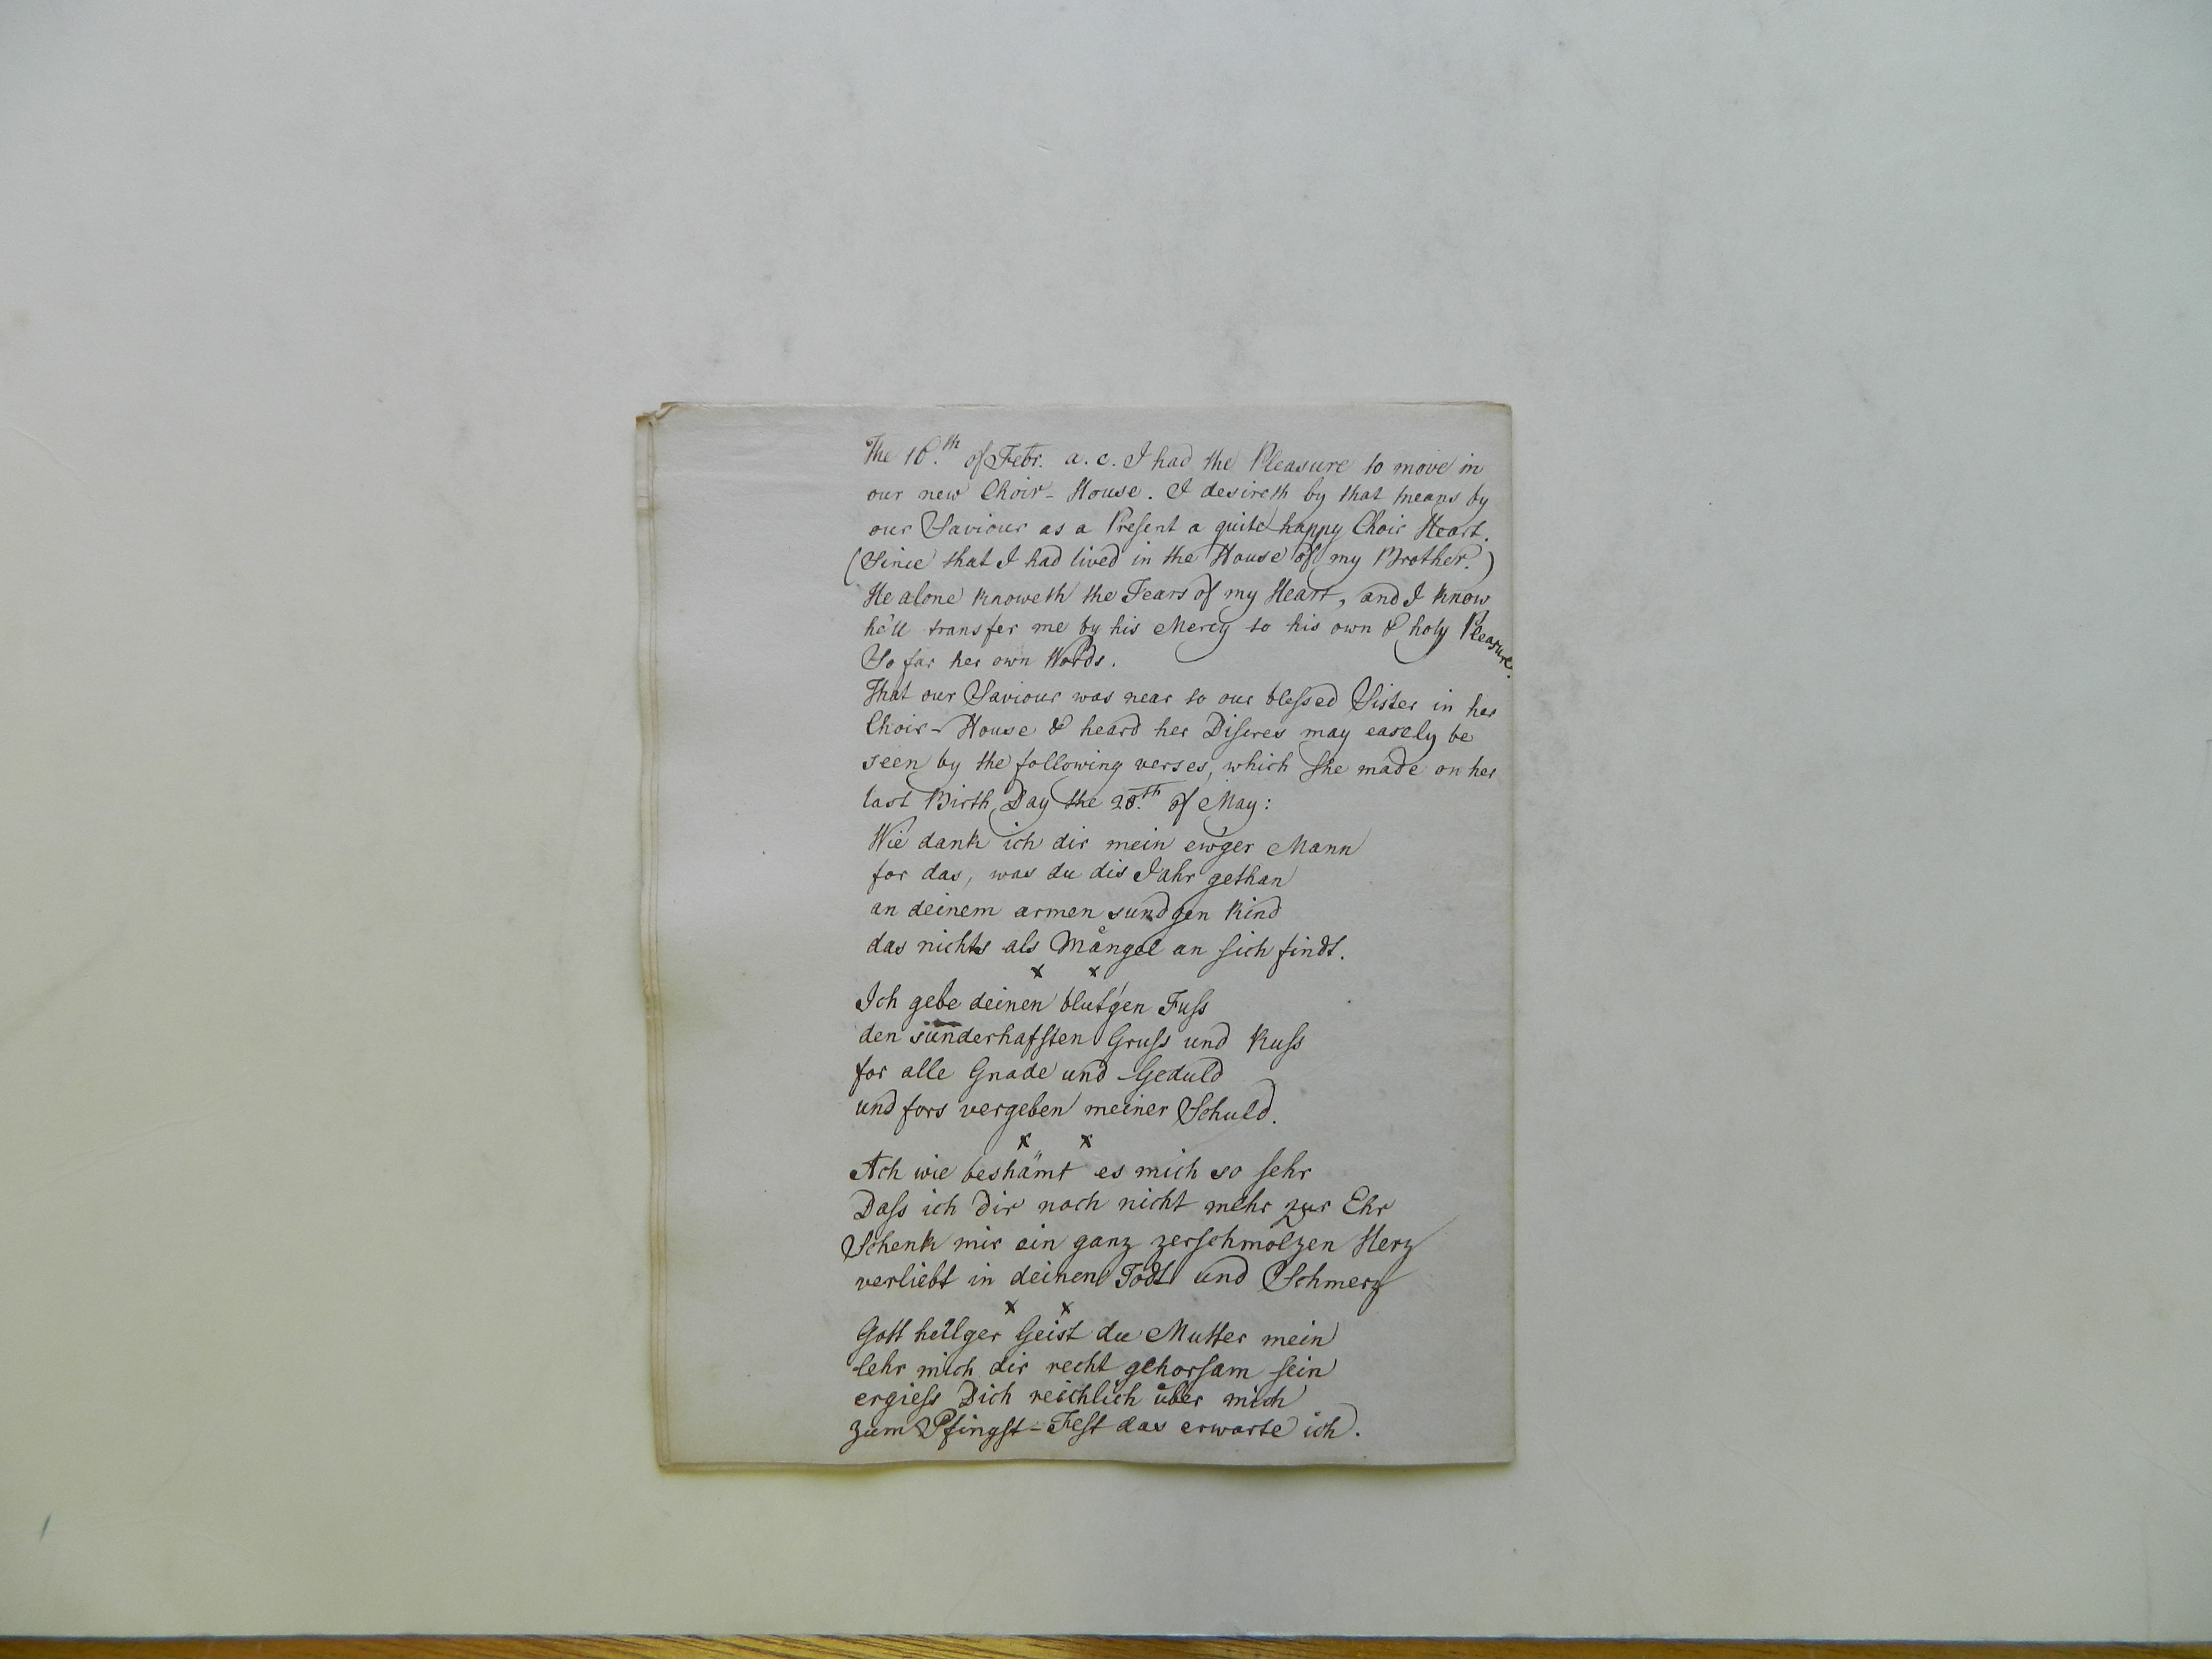 The 10.th of Febr. a. c. I had the Pleasure to move in
our new Choir-House. I desireth by that means by
our Saviour as a Present a quite happy Choir Heart.
(Since that I had lived in the House of my Brother.)
He alone knoweth the Tears of my Heart, and I know
he'll transfer me by his Mercy to his own & holy Pleasure.
So far her own Words.
That our Saviour was near to our blessed Sister in her
Choir-House & heard her Disires may easely be
seen by the following verses, which she made on her
last Birth Day the 20.th of May:
Wie dank ich dir mein ew'ger Mann
for das, was du dis Jahr gethan
an deinem armen sundgen Kind
das nichts als Mångel an sich findt.
x x
Ich gebe deinen blut'gen Fuss
den sünderhafsten Gruss und Kuss
for alle Gnade und Geduld
und fors vergeben meiner Schuld.
x x
Ach wie beshämt es mich so sehr
Dass ich dir noch nicht mehr zur Ehr
Schenk mir ein ganz zerschmolzen Herz
verliebt in deinen Todt und Schmerz
x x
Gott heilger Geist du Mutter mein
lehr mich dir recht gehorsam sein
ergiess Dich reichlich über mich
zum Pfingst-Fest das erwarte ich.